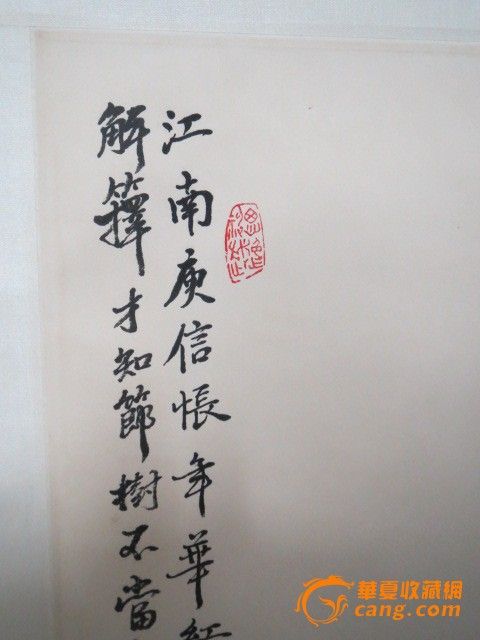 江南庾信悵年華紅
解籜才知節樹不當
華夏收藏網
cang.com